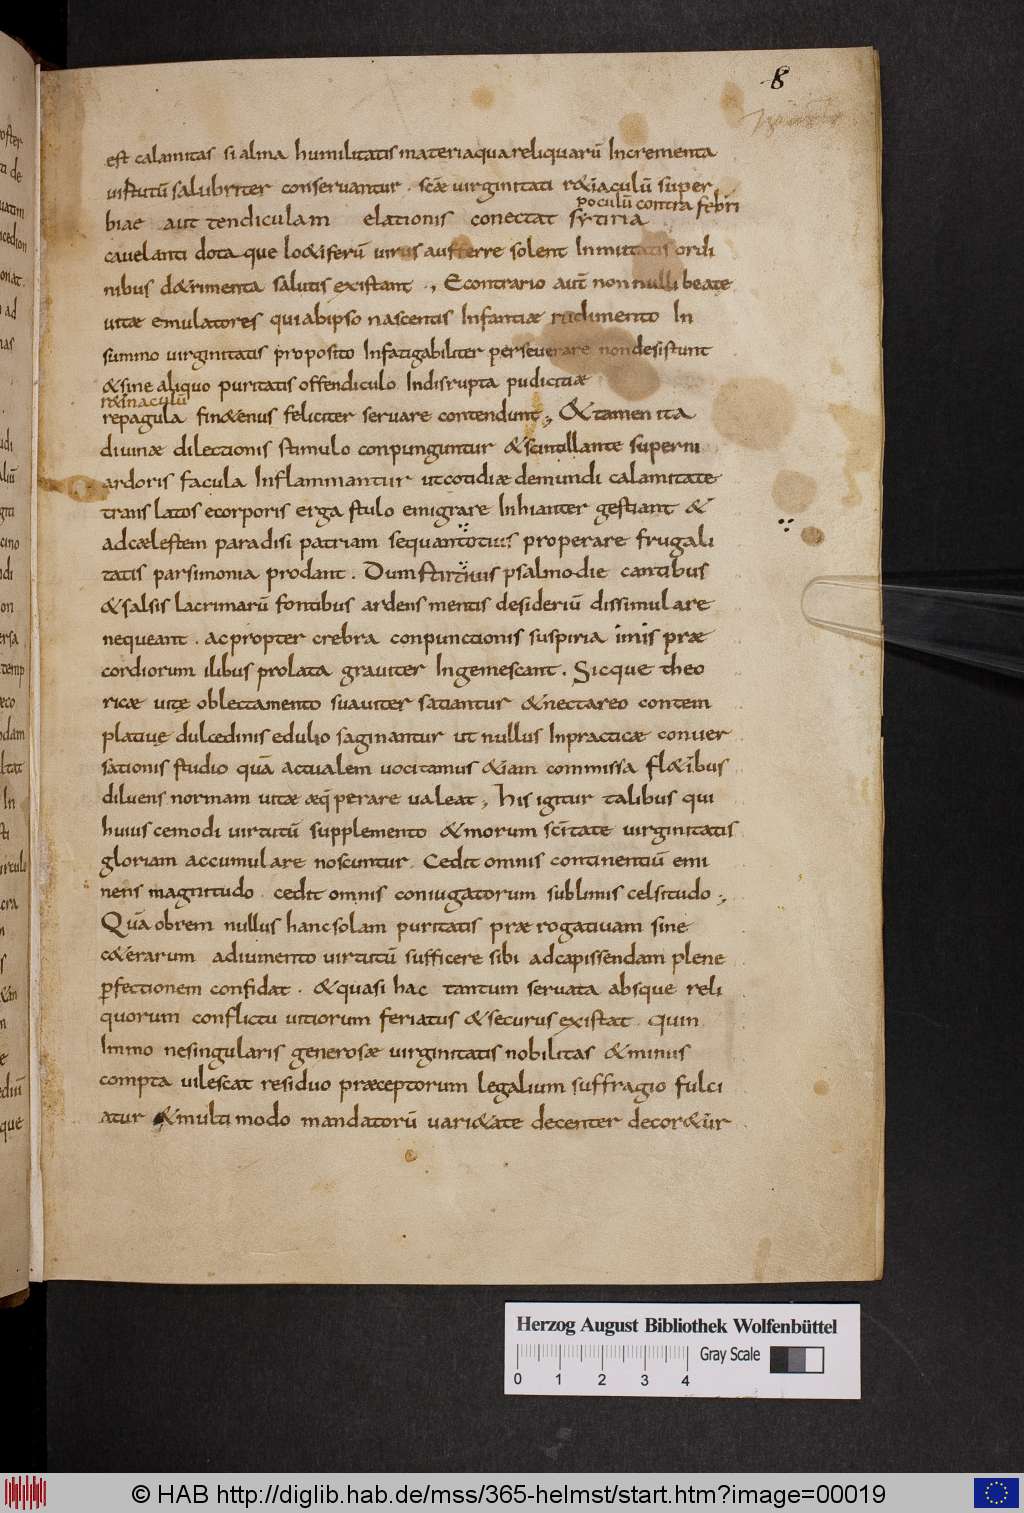 8
est calamitas si alma humilitatis materia qua reliquarū Incrementa
uirtutū salubriter conseruantur . scāe uirginitati r&iaculū super
poculū contra febri
biae aut tendiculam elationis conectat sytiria
cauelanti dota que lo&iferū uirus aufferre solent Inmutatis ordi
nibus d&rimenta salutis existant ., E contrario aut̄ non nulli beate
uitae emulatores qui ab ipso nascentis Infantiae rudimento In
summo uirginitatis proposito Infatigabiliter perseuerare non desistunt
& sine aliquo puritatis offendiculo Indisrupta pudicitiae
r&inaculū
repagula fin&enus feliciter seruare contendunt ., & tamen ita
diuinae dilectionis stimulo conpunguntur & scintillante superni
ardoris facula Inflammantur ut cotidiae demundi calamitate
trans latos ecorporis ergastulo emigrare Inhianter gestiant &
ad caelestem paradisi patriam sequantotius properare frugali
tatis parsimonia prodant . Dum stirtiuis psalmodie cantibus
& salsis lacrimarū fontibus ardens mentis desideriū dissimulare
nequeant . ac propter crebra conpunctionis suspiria imis prae
cordiorum ilibus prolata grauiter Ingemescant . Sicque theo
ricae uite oblectamento suauiter satiantur & nectareo contem
platiuę dulcedinis edulio saginantur ut nullus Inpracticae conuer
sationis studio quā actualem uocitamus &iam commissa fl&ibus
diluens normam uitae aeq̄perare ualeat , his igitur talibus qui
huius cemodi uirtutū supplemento & morum sc̄itate uirginitatis
gloriam accumulare noscuntur . Cedit omnis continentiū emi
nens magnitudo . cedit omnis coniugatorum sublimis celsitudo .,
Quā obrem nullus hanc solam puritatis prae rogatiuam sine
c&erarum adiuimento uirtutū sufficere sibi ad capissendam plene
ꝑfectionem confidat . & quasi hac tantum seruata absque reli
quorum conflictu uitiorum feriatus & securus existat . quin
Immo ne singularis generosae uirginitatis nobilitas & minus
compta uilescat residuo praeceptorum legalium suffragio fulci
atur & multi modo mandatorū uari&ate decenter decor&ūr
Herzog August Bibliothek Wolfenbüttel
Gray Scale
0 1 2 3 4
© HAB http://diglib.hab.de/mss/365-helmst/start.htm?image=00019